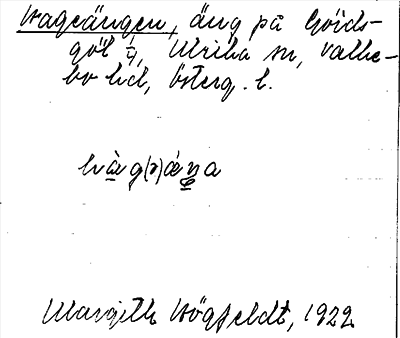 Hageängen, äng på Göids-
göl 1/4, Ulrika sn, Valke-
bo hd, Österg. l.
hàg(ə)äŋa
Margith Högfeldt, 1922